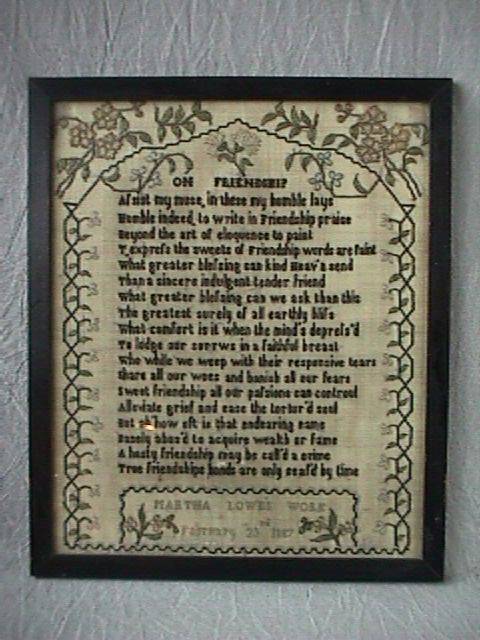 ON FRIENDSHIP
Afsist my muse, in these my humble lays
Humble indeed, to write in Friendship praise
Beyond the art of eloquence to paint
T exprefs the sweets of Friendship words are faint
What greater blefsing can kind Heav'n send
Than a sincere indulgent tender friend
What greater blefsing can we ask than this
The greatest surely of all earthly blifs
What comfort is it when the mind's deprefs'd
To lodge our sorrws in a faithful breast
Who while we weep with their responsive tears
Share all our woes and banish all our fears
Sweet friendship all our pafsions can controul
Alleviate grief and ease the tortur'd soul
But how oft is that endearing name
Basely abus'd to acquire wealth or fame
A hasty friendship may be call'd a crime
True friendships bonds are only seal'd by time
MARTHA LOWES WORK
February 23